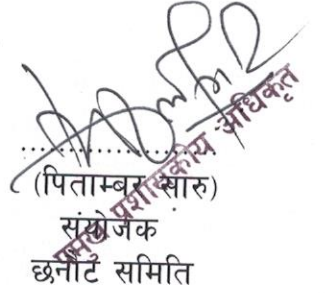 ....................
(पिताम्बर सारु)
संयोजक
छनौट समिति
प्रमुख प्रशासकीय अधिकृत